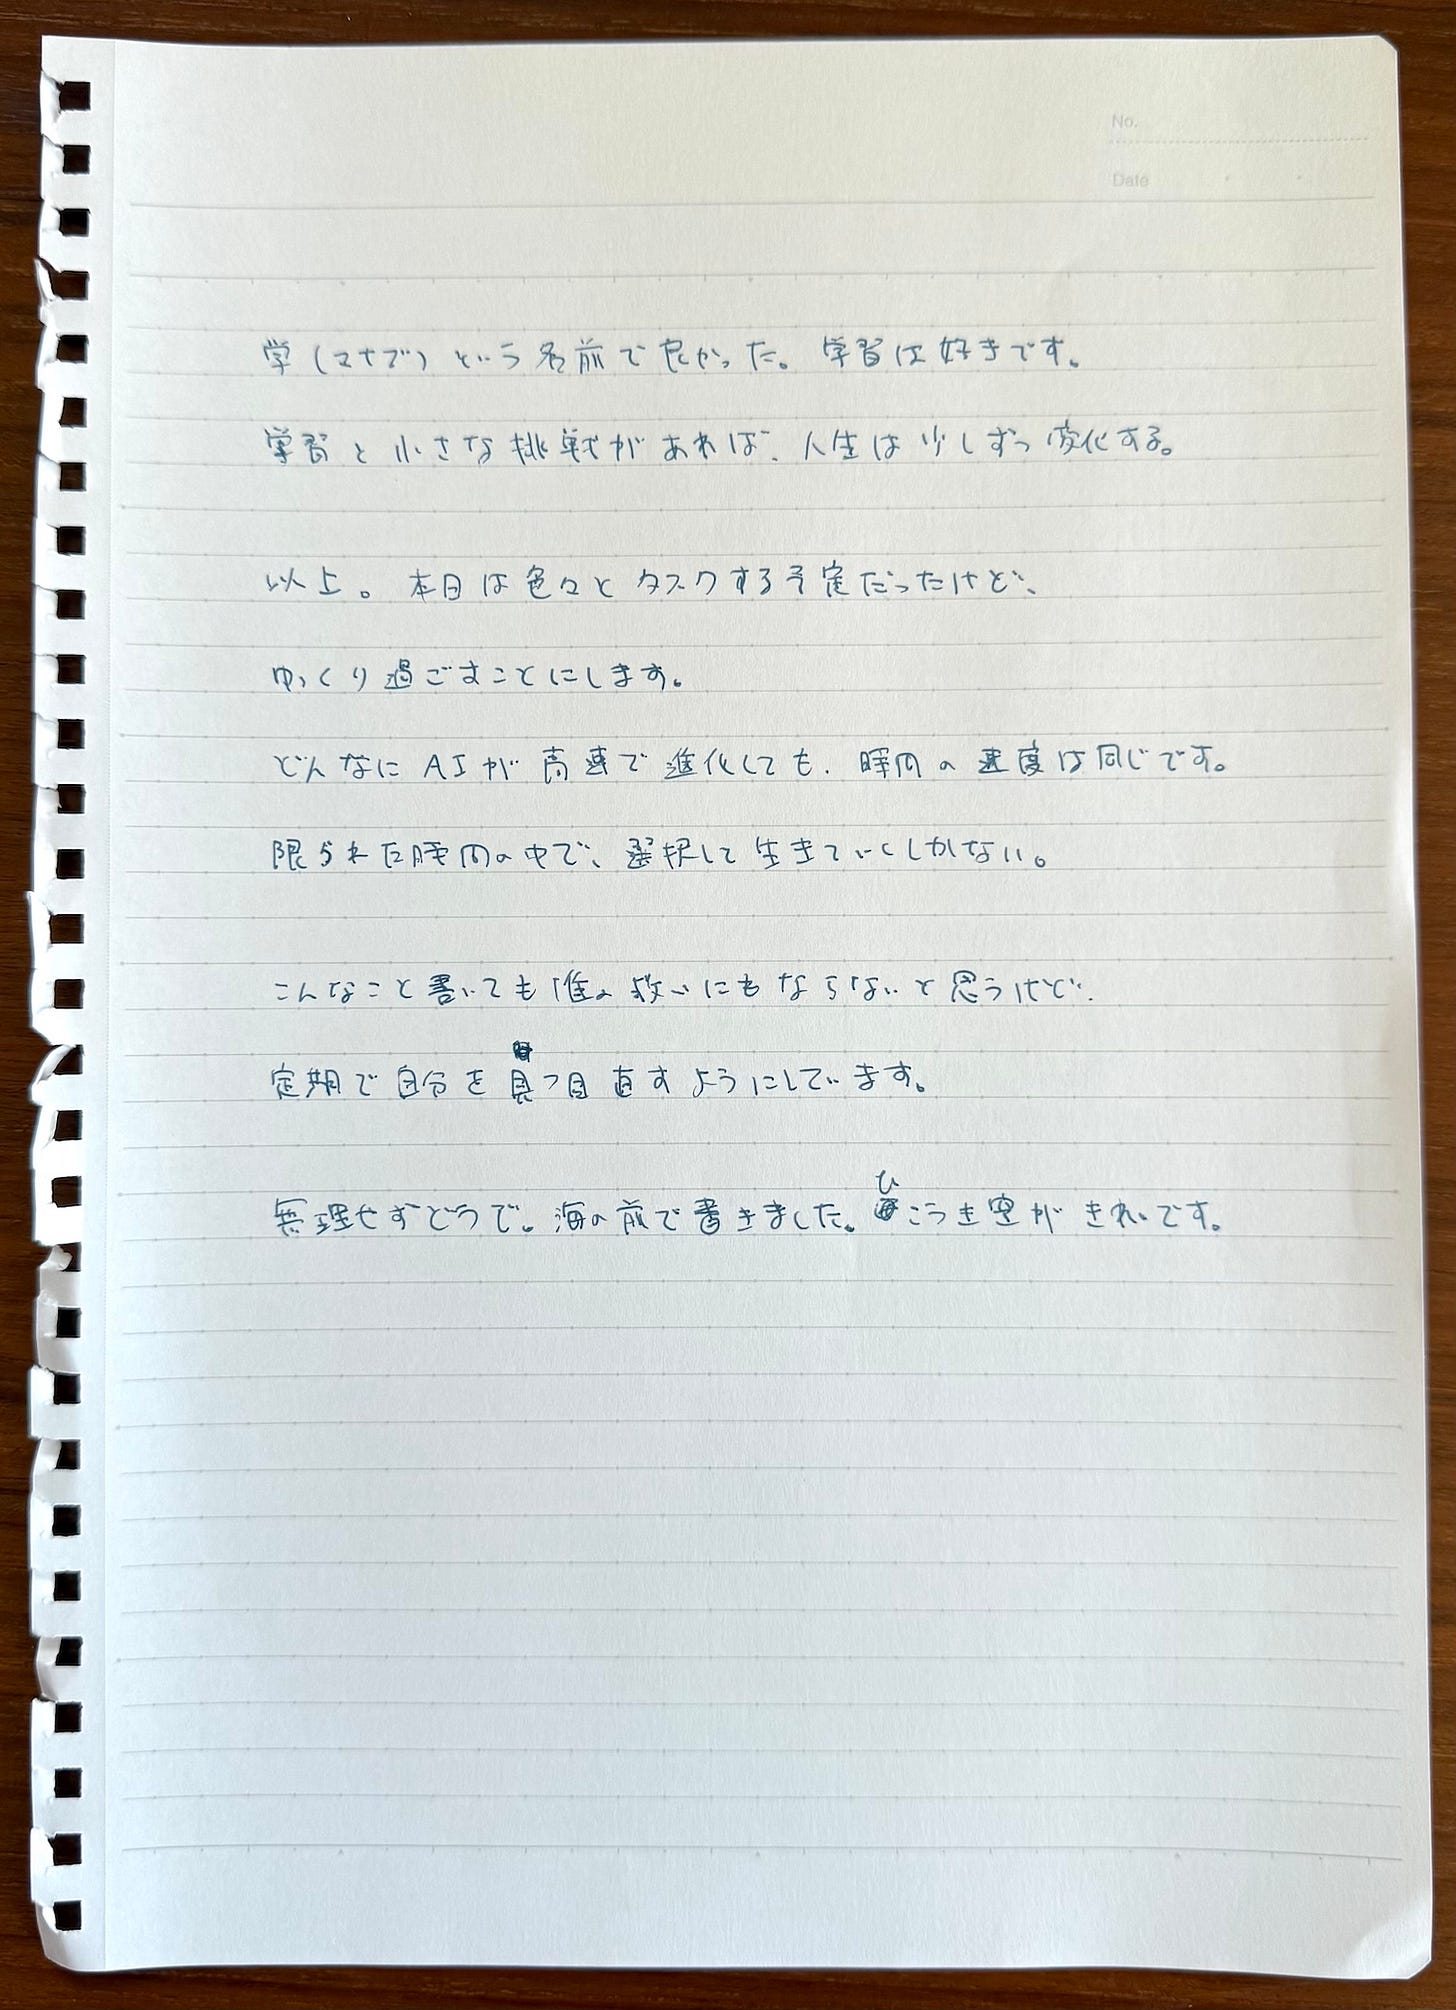 No.
Date
学(マナブ)という名前で良かった。学習は好きです。
学習と小さな挑戦があれば、人生は少しずつ変化する。
以上。本日は色々とタスクする予定だったけど、
ゆっくり過ごすことにします。
どんなにAIが高速で進化しても、時間の速度は同じです。
限られた時間の中で、選択して生きていくしかない。
こんなこと書いても誰の救いにもならないと思うけど、
定期で自分を見つ目直すようにしています。
無理せずどうで。海の前で書きました。ひこうき雲がきれいです。